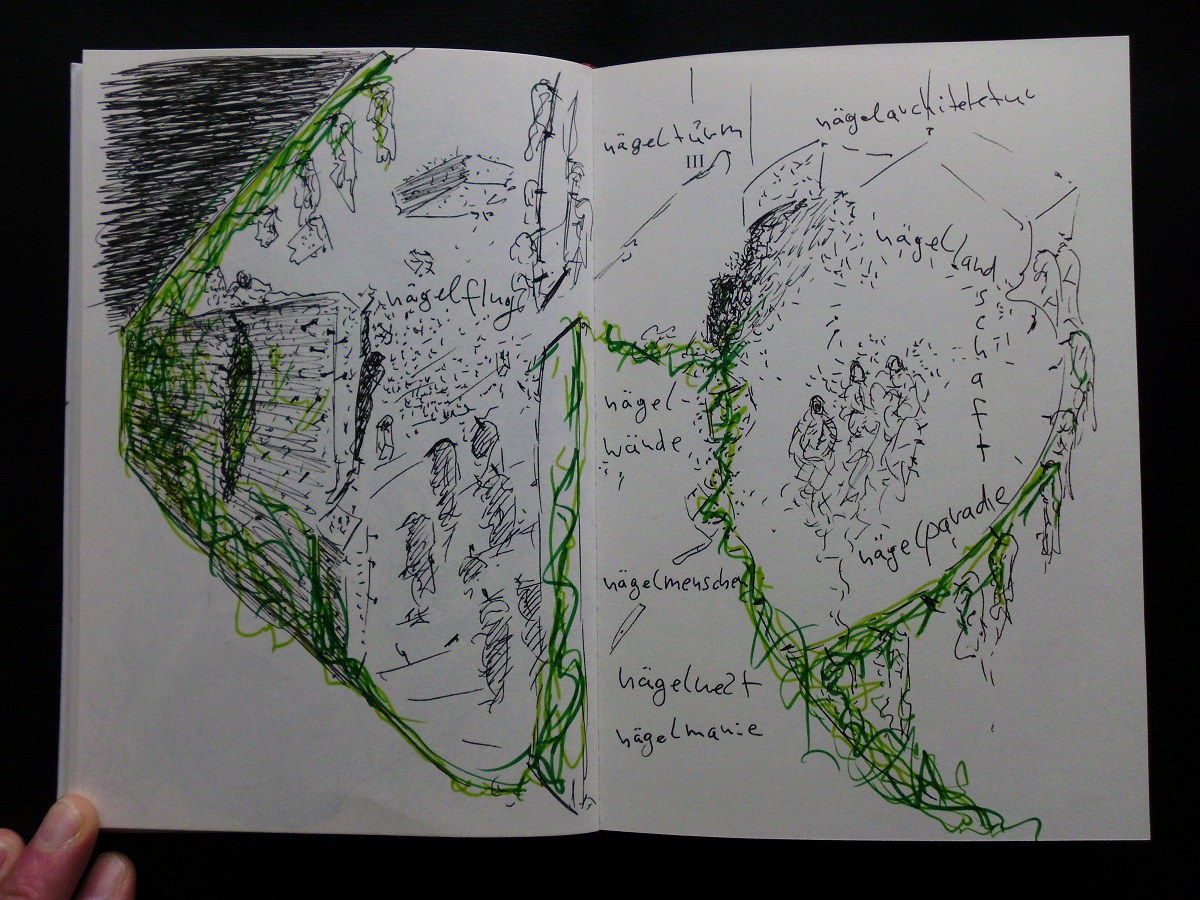 nägelflug
nägelturm
III
nägelarchitektur
nägelland
schaft
nägel
wände
nägelparade
nägelmenschen
nägelnest
nägelmanie